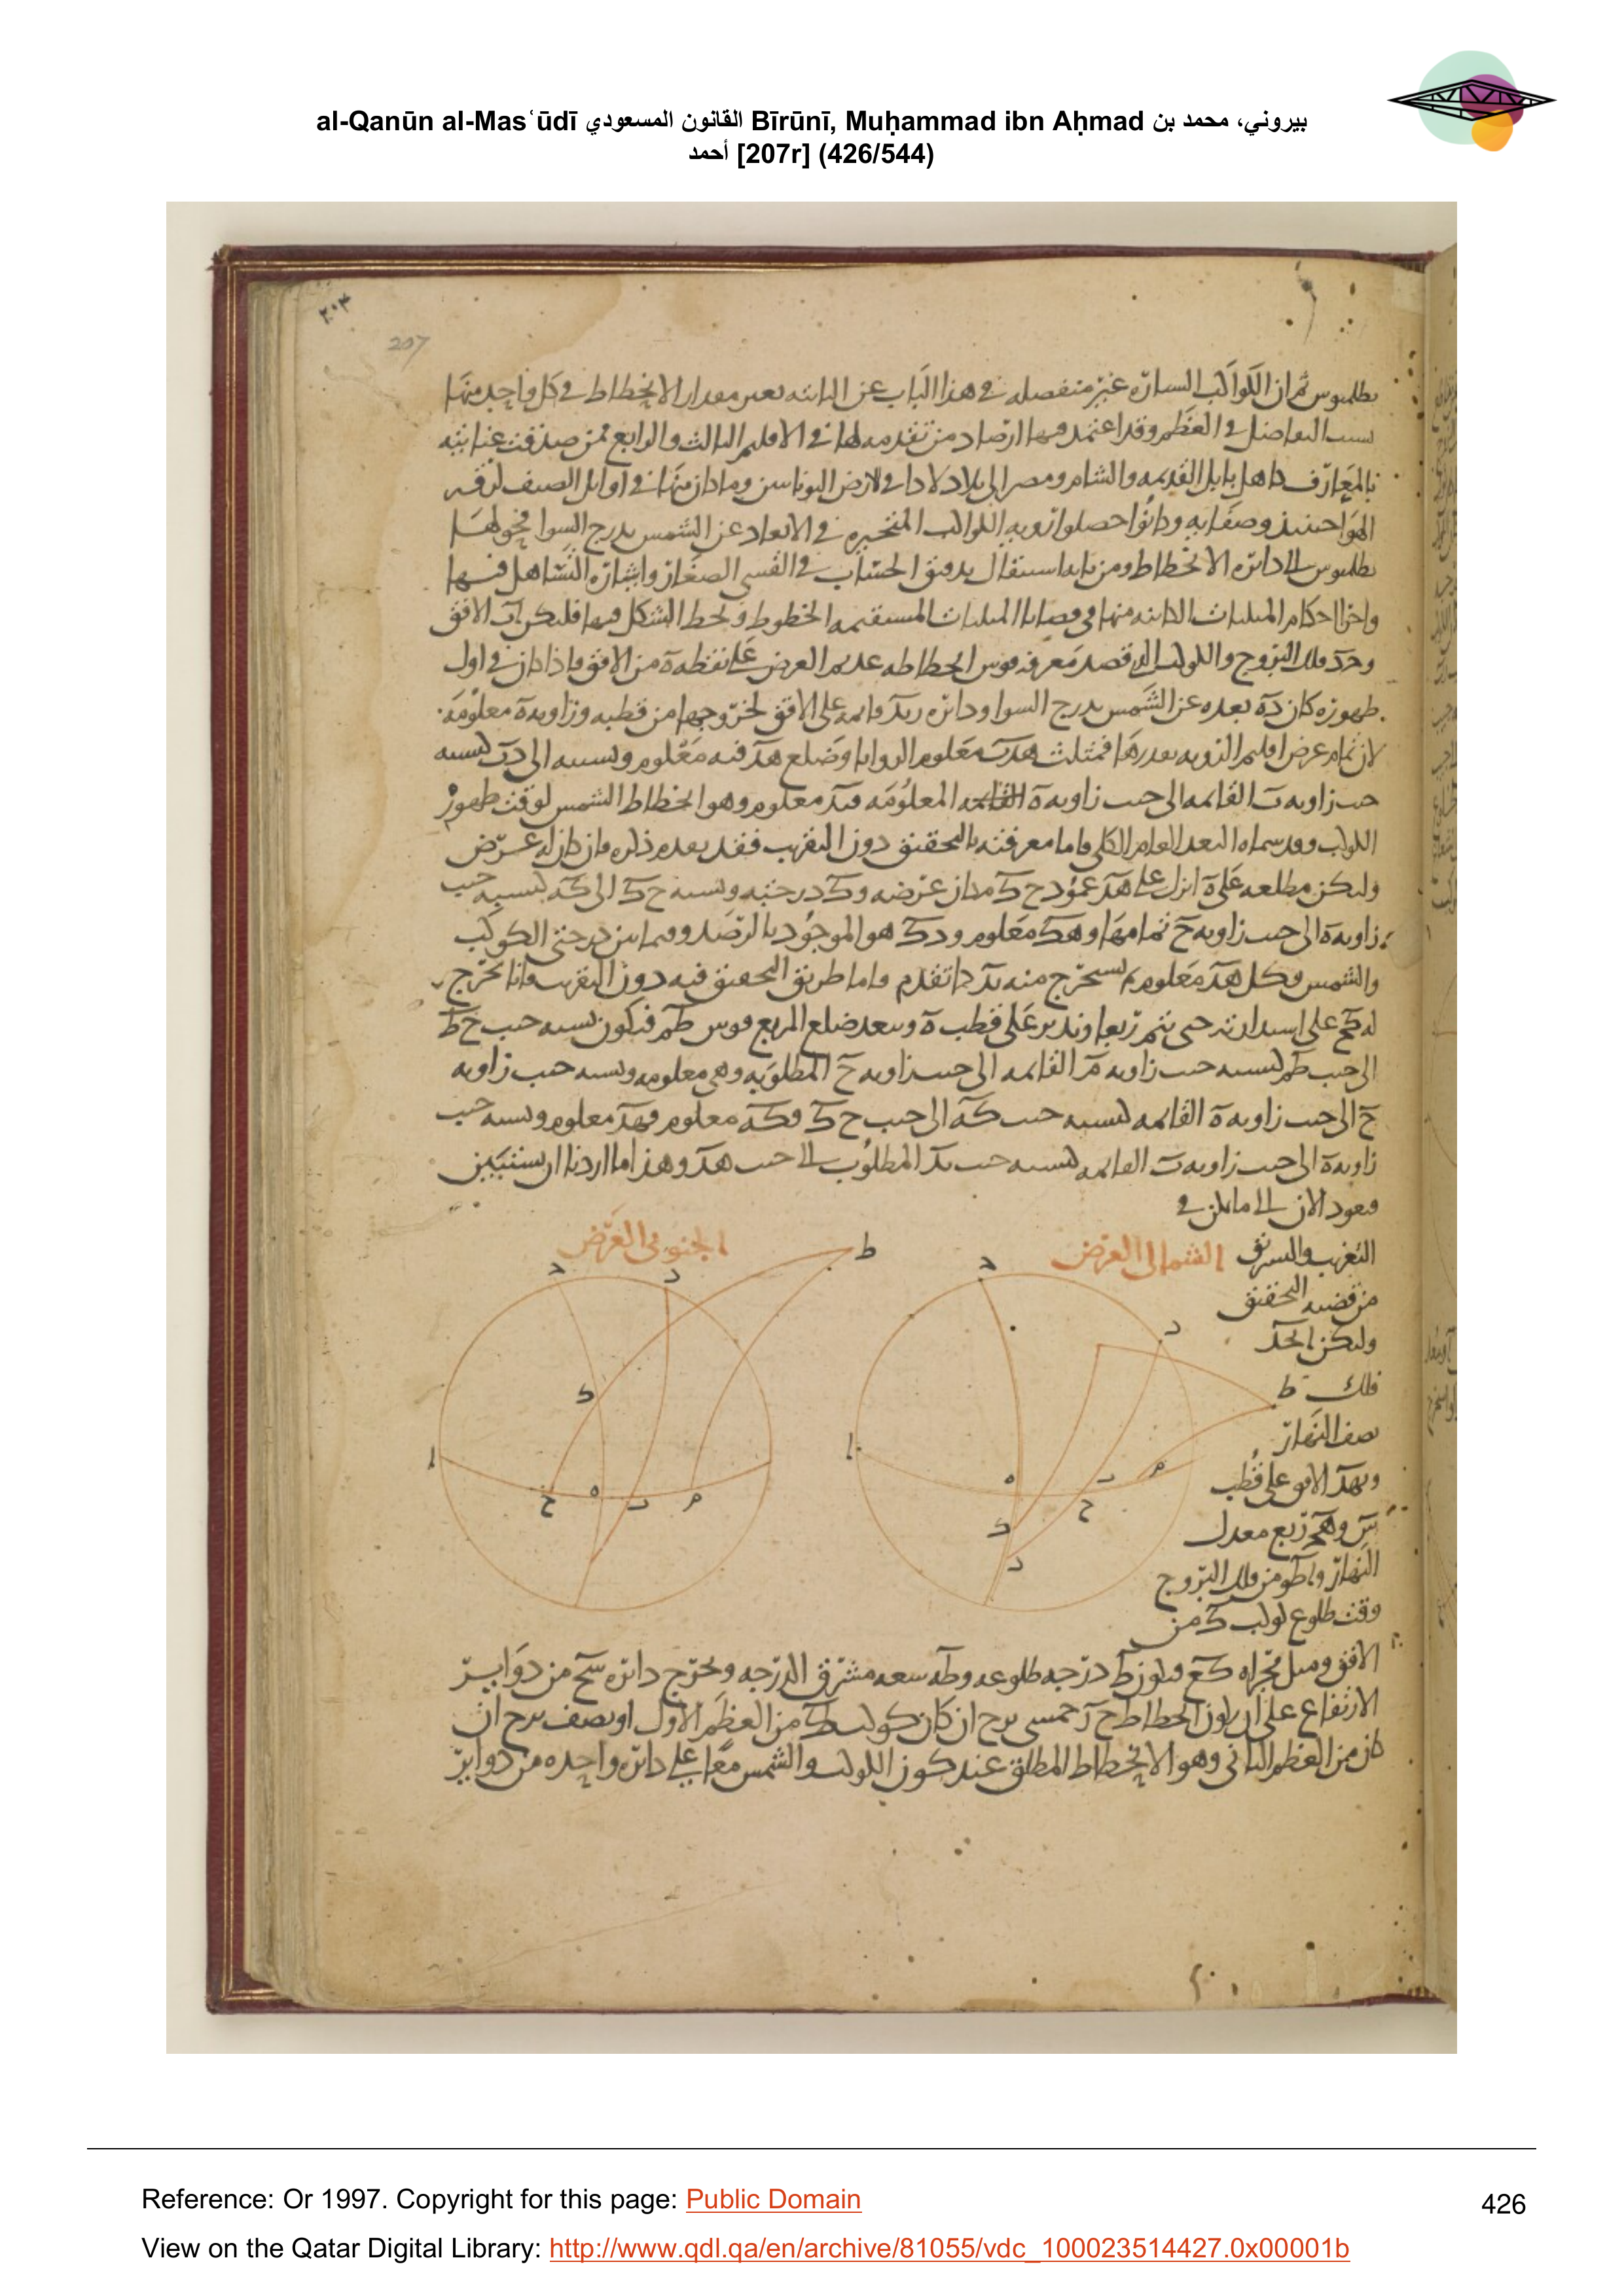 al-Qanūn al-Masʿūdī القانون المسعودي Bīrūnī, Muḥammad ibn Aḥmad بيروني، محمد بن
أحمد [207r] (426/544)
207
بطلميوس ثم ان الكواكب السيارة غير منفصله في هذا الباب عن الثابته بغير مقدار الانحطاط في كل واحد منها
بسبب التفاضل في العظم وقد اعتمد فيها ارصاد من تقدمه لها في الاقليم الثالث والرابع ممن صدقت عنايته
بالمعارف كاهل بابل القديمه والشام ومصر الى بلاد
الهوا حينئذ وصفايه وكانوا حصلوا رويه الكواكب المتحيره في الابعاد عن الشمس بدرج السوا فحولها
بطلميوس الى دائره الانحطاط ومن بابه استقلال بدقيق الحساب في القسي الصغار واشاره التساهل فيها
واخرا احكام المثلثات الكائنه منها في قضايا المثلثات المستقيمه الخطوط ونخط الشكل فيها فليكن اب الافق
وحد فلك البروج والكوكب الذي قصد معرفه قوس انحطاطه عديم العرض على نقطه ه من الافق فاذا كان في اول
ظهوره كان ده بعده عن الشمس بدرج السوا ودائره ربد قائمه على الافق لخروجها من قطبه وزاويه ه معلومه
لان تمام عرض اقليم الرويه بقدرها فمثلث هدب معلوم الزوايا وضلع هد فيه معلوم ونسبته الى دب كنسبه
جيب زاويه ب القائمه الى جيب زاويه ه المعلومه فبد معلوم وهو انحطاط الشمس لوقت ظهور
الكوكب وقد سماه البعد العام الكلي فاما معرفته بالتحقيق دون التقريب فقد يقدم ذكره فان كان له عرض
وليكن مطلعه على ه انزل على هد عمود ح ك مكان عرضه وك درجته ونسبه ح ك الى ك ه كنسبه جيب
زاويه ه الى جيب زاويه ح تمامها وهك معلوم ودك هو الموجود بالرصد وفيما بين درجتي الكوكب
والشمس فكل هد معلوم يستخرج منه بد كما تقدم واما طريق التحقيق فيه دون التقريب فانا نخرج
الى جيب طم كنسبه جيب زاويه م القائمه الى جيب زاويه ح المطلوبه وهي معلومه ونسبه جيب زاويه
ح الى جيب زاويه ه القائمه كنسبه جيب كه الى جيب ح ك فكه معلوم فهد معلوم ونسبه جيب
زاويه ه الى جيب زاويه ب القائمه كنسبه جيب بد المطلوب الى جيب هد وهذا ما اردنا ان نستبين
فنعود الان الى ما يمكن في
التقريب والتشريق
الشمالي العرض
الجنوبي العرض
من قضيه التحقيق
وليكن ابجد
فلك
نصف النهار
وبهد الافق على قطب
ربع معدل
النهار من فلك البروج
وقت طلوع كوكب ك من
الافق وميل مجراه كع فيكون ط درجه طلوعه وطه سعه مشرق الدرجه ونخرج دائره سح من دواير
الارتفاع على ان يكون انحطاط ح خمسي برج ان كان كوكب ك من العظم الاول او نصف برج ان
كان من العظم الثاني وهو الانحطاط المطلق عند كون الكوكب والشمس معا على دائره واحده من دواير
Reference: Or 1997. Copyright for this page: Public Domain
426
View on the Qatar Digital Library: http://www.qdl.qa/en/archive/81055/vdc_100023514427.0x00001b